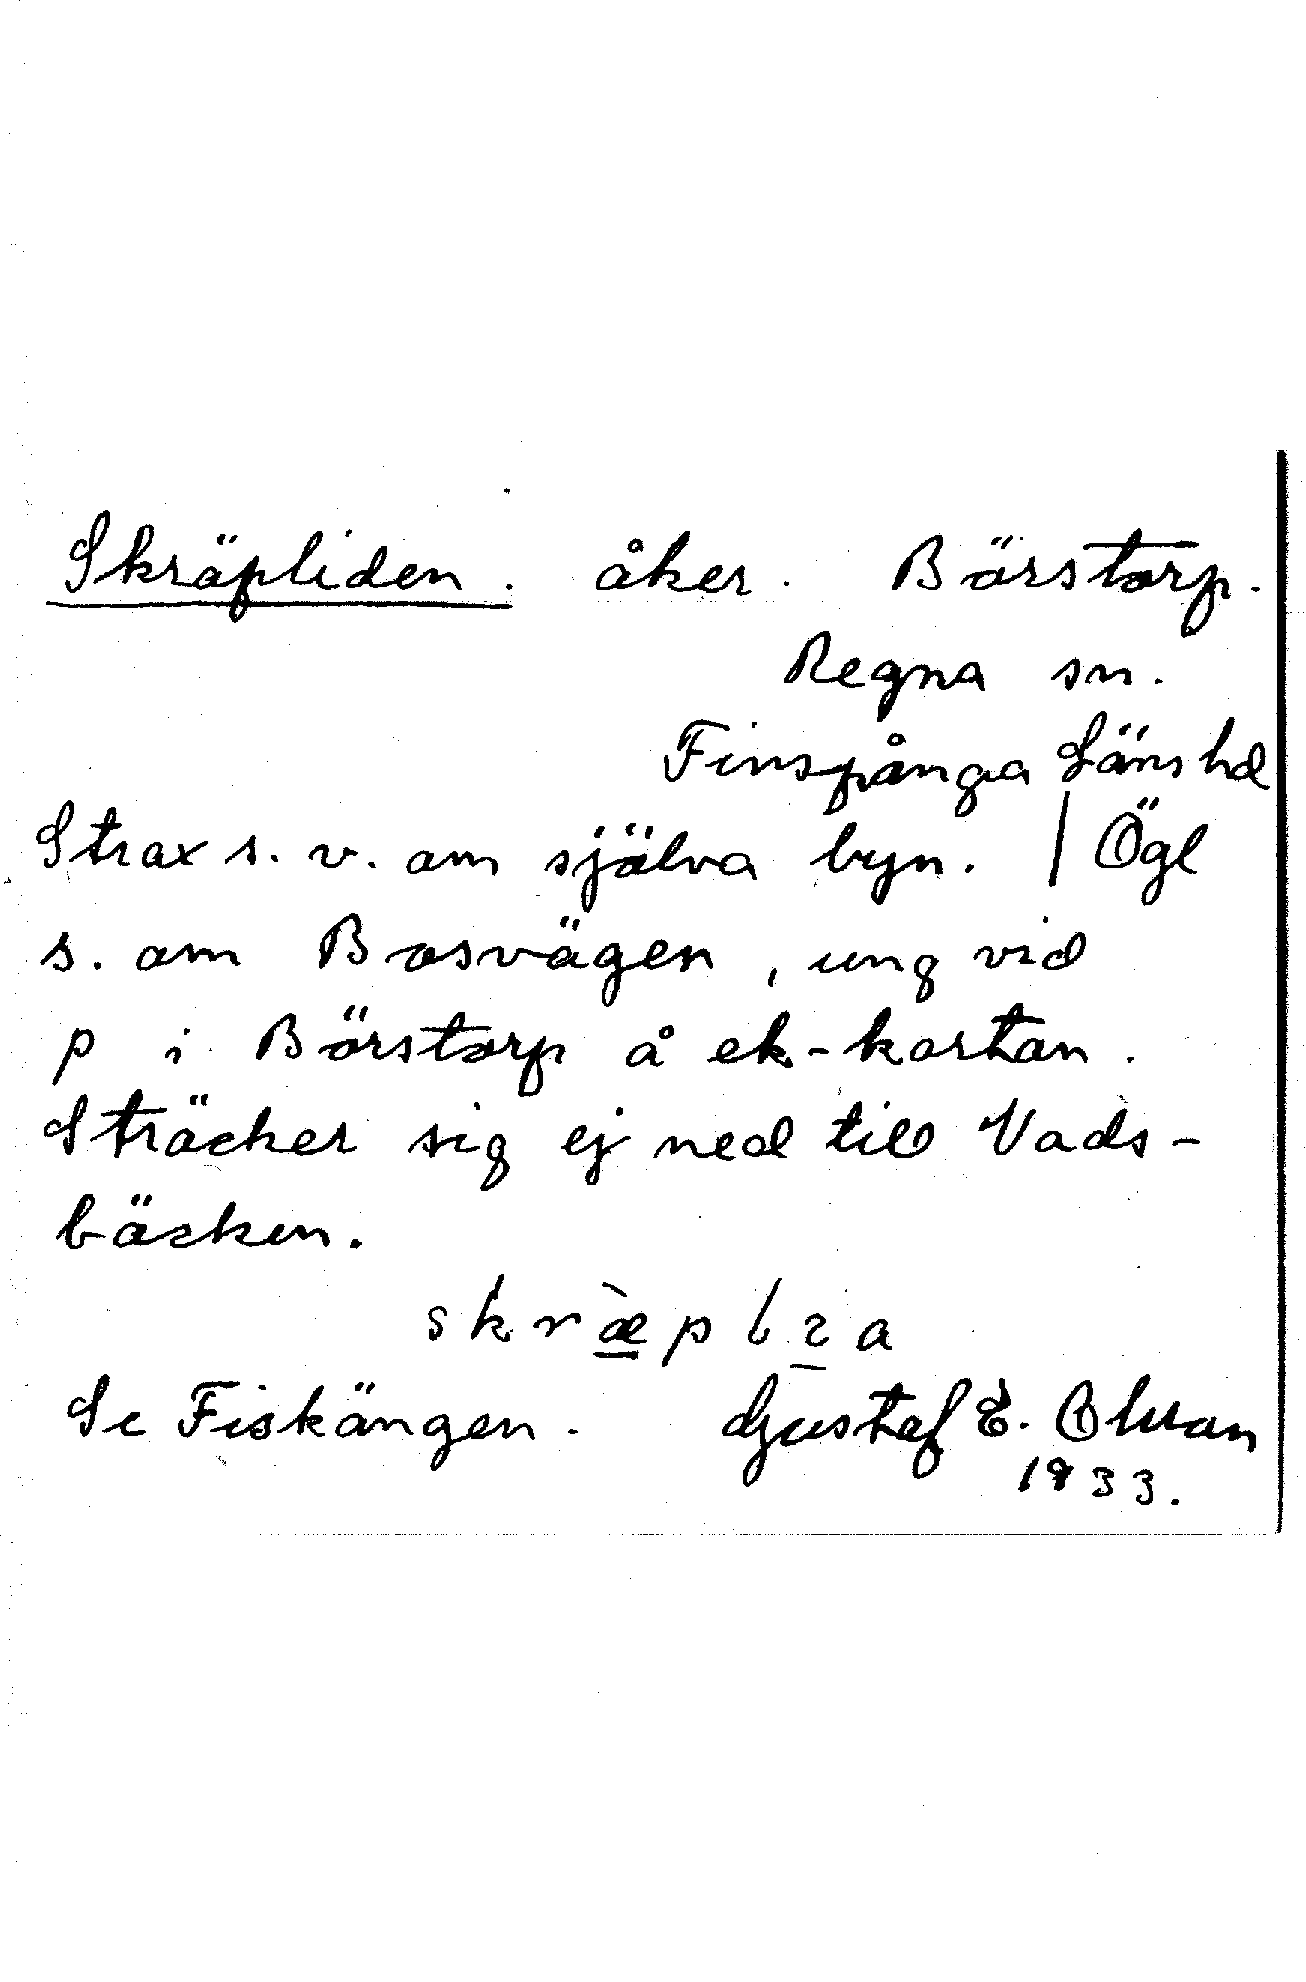 Skräpliden. åker. Börstorp.
Regna sn.
Finspånga Läns hd
Strax s. v. om själva byn. / Ögl
s. om Bosvägen, ung vid
p i Börstorp å ek-kartan.
Sträcker sig ej ned till Vads-
bäcken.
Se Fiskängen. Gustaf E. Olsson
1933.